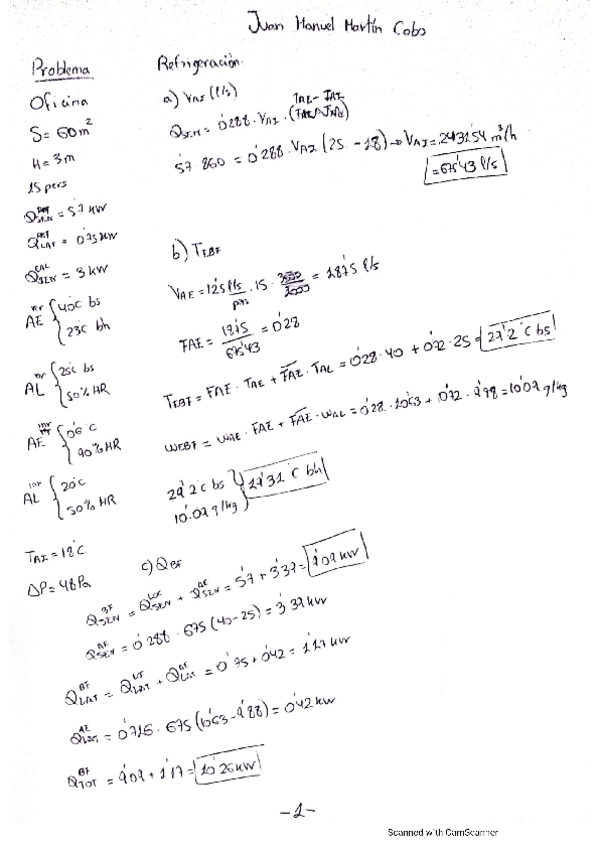 Juan Manuel Martín Cobo
Problema
Oficina
S = 60 m²
H = 3 m
15 pers
Q_SEN = 5'7 kW
Q_LAT = 0'75 kW
Q_SEN^CAL = 3 kW
AE { 40°C bs
23°C bh
AL { 25°C bs
50% HR
AE { 0'6°C
90% HR
AL { 20°C
50% HR
T_AI = 18°C
ΔP = 48 Pa
Refrigeración.
a) V_AI (l/s)
Q_SEN = 0'288 · V_AI ·
5'7 · 860 = 0'288 · V_AI (25 - 18) → V_AI = 2431'54 m³/h
= 675'43 l/s
b) T_EBF
V_AE = 12'5 l/s · 15 · = 187'5 l/s
FAE = 187'5 / 675'43 = 0'28
T_EBF = FAE · T_AE + F̄AE · T_AL = 0'28 · 40 + 0'72 · 25 = 29'2°C bs
W_EBF = W_AE · FAE + F̄AE · W_AL = 0'28 · 10'63 + 0'72 · 9'88 = 10'09 g/kg
29'2°C bs } 19'31°C bh
10'09 g/kg
c) Q_BF
Q_SEN^BF = Q_SEN^LOC + Q_SEN^AE = 5'7 + 3'39 = 9'09 kW
Q_SEN^AE = 0'288 · 675 (40 - 25) = 3'39 kW
Q_LAT^BF = Q_LAT + Q_LAT^AE = 0'75 + 0'42 = 1'17 kW
Q_LAT^AE = 0'716 · 675 (10'63 - 9'88) = 0'42 kW
Q_TOT^BF = 9'09 + 1'17 = 10'26 kW
-1-
Scanned with CamScanner